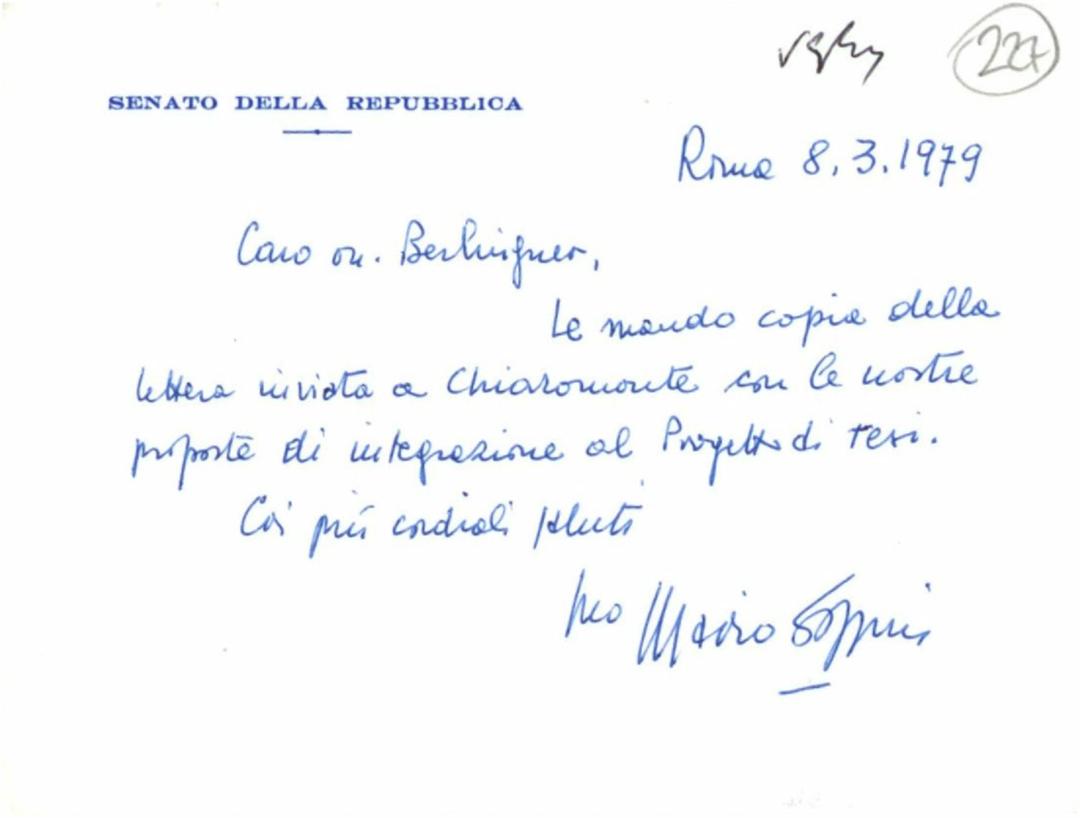 227
SENATO DELLA REPUBBLICA
Roma 8.3.1979
Caro on. Berlinguer,
Le mando copia della
lettera inviata a Chiaromonte con le nostre
proposte di integrazione al Progetto di tesi.
Coi più cordiali saluti
suo Mario